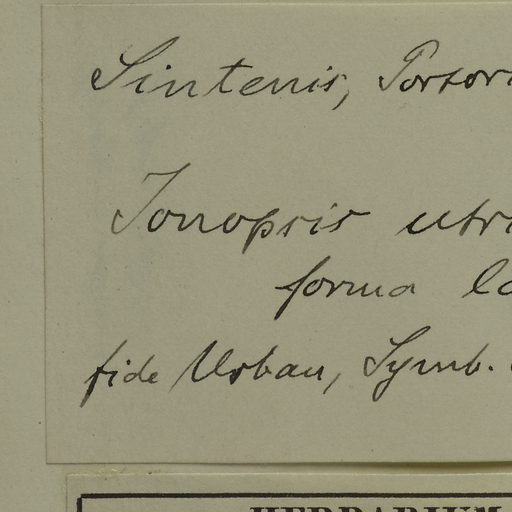 Sintenis, Portori
Ionopsis utri
forma la
fide Urban, Symb.
HERBARIUM